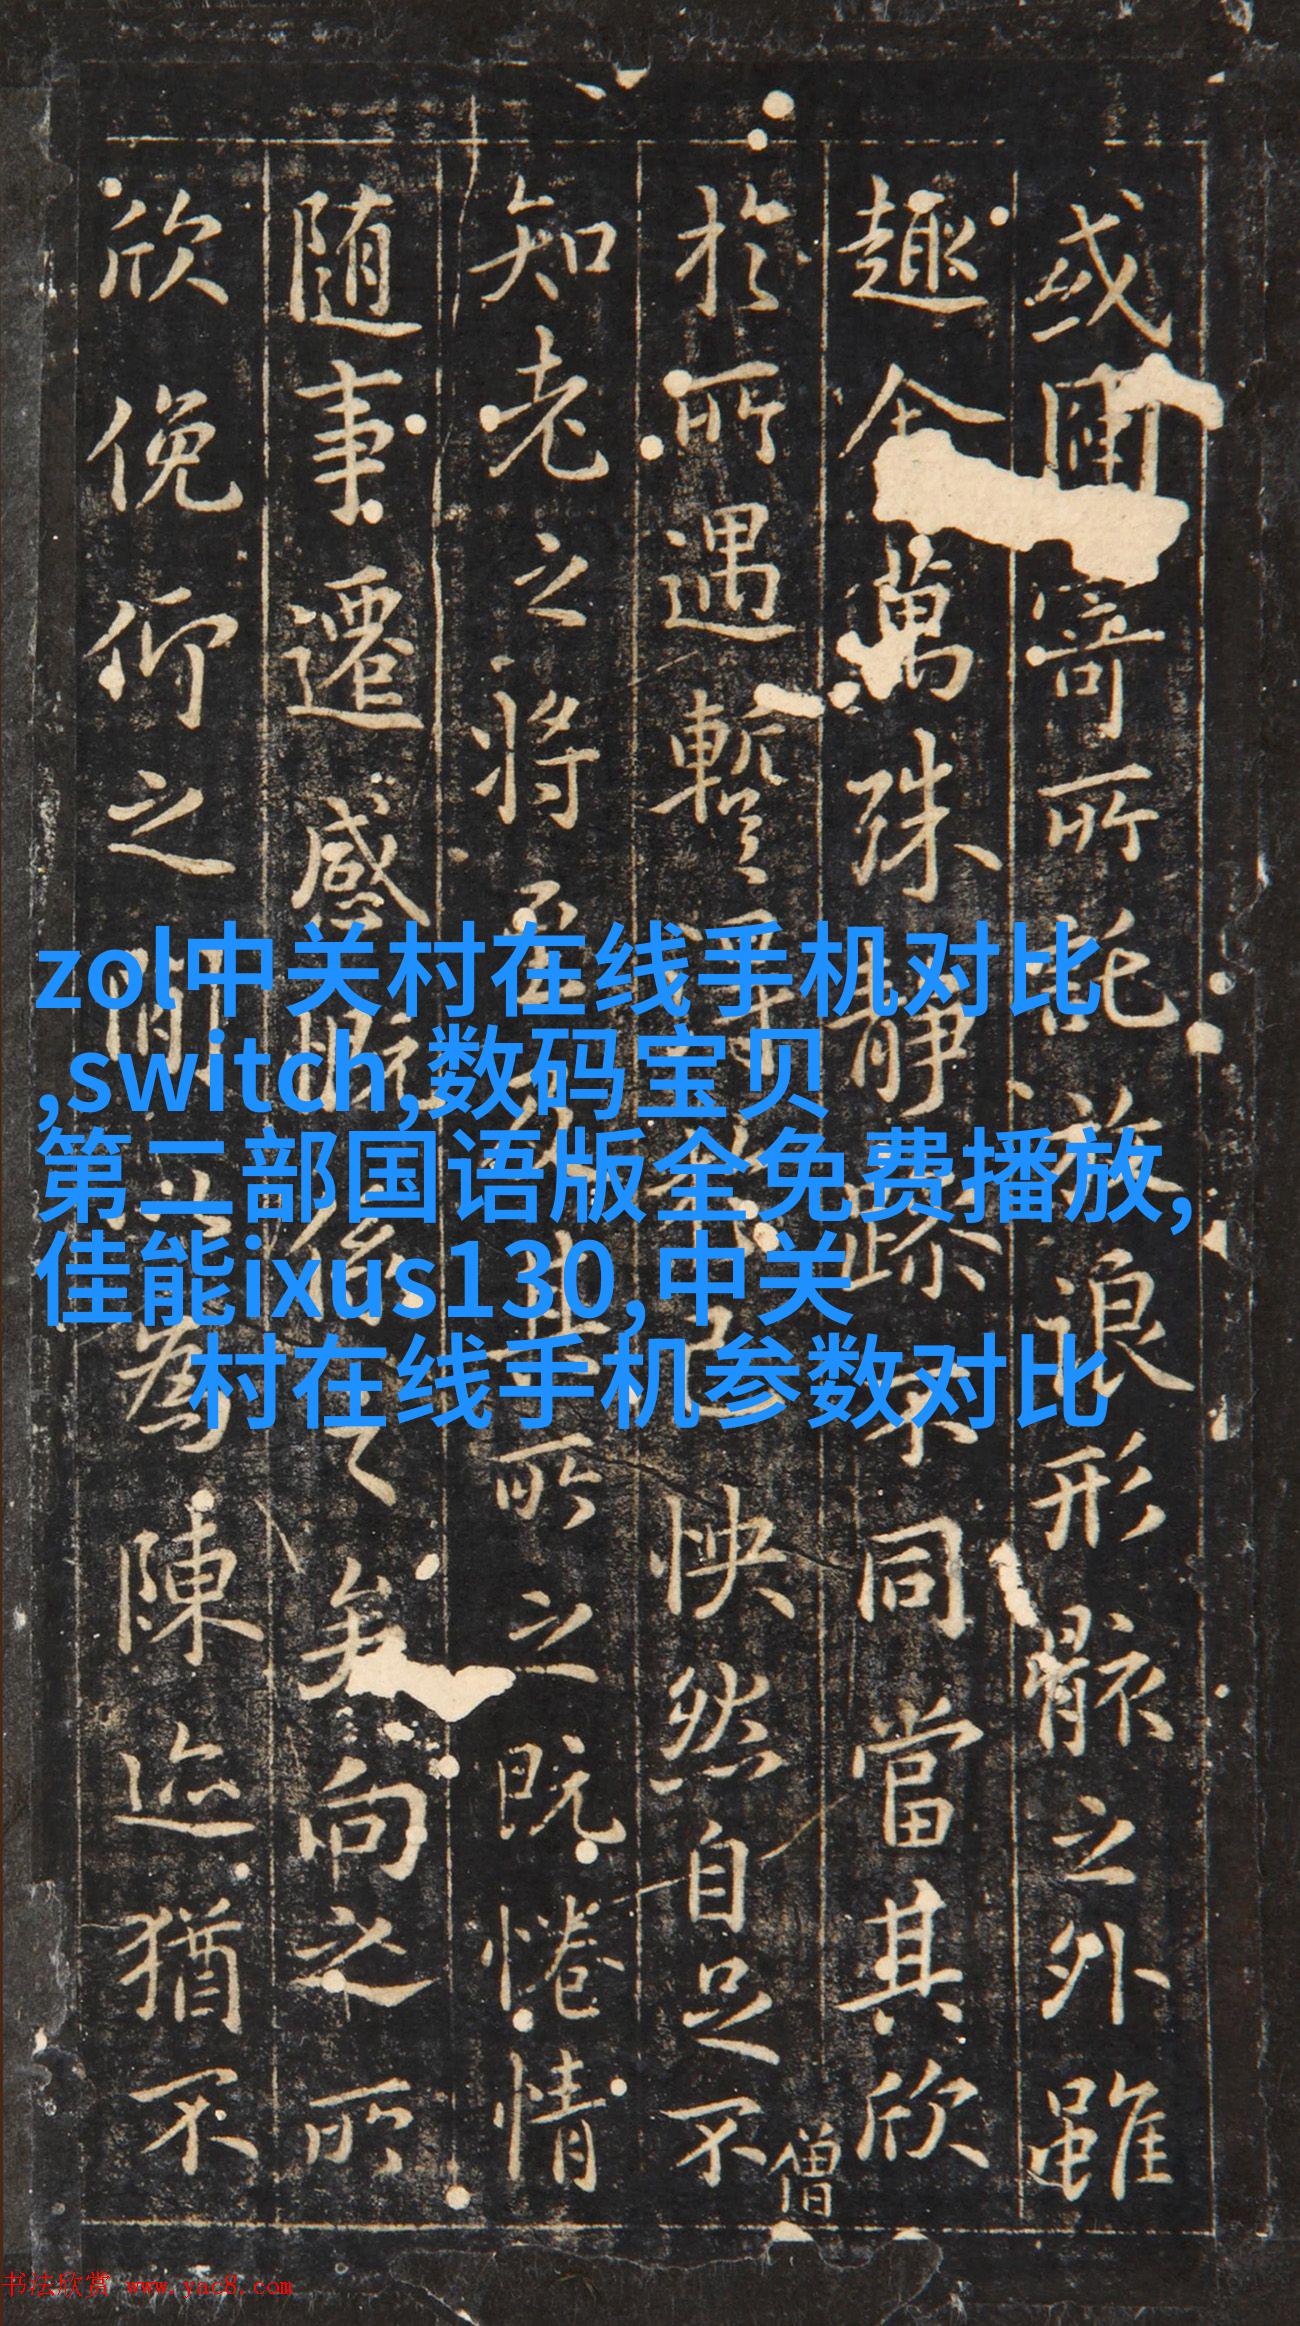 或因寄所託放浪形骸之外雖
趣萬殊靜躁不同當其欣
於所遇暫得於己怏然自足不
僧
知老之將至及其所之既惓情
随事遷感慨係之矣向之所
欣俛仰之間以為陳迹猶不
zol中关村在线手机对比
,switch,数码宝贝
第二部国语版全免费播放,
佳能ixus130,中关
村在线手机参数对比
书法欣赏 www.yac8.com